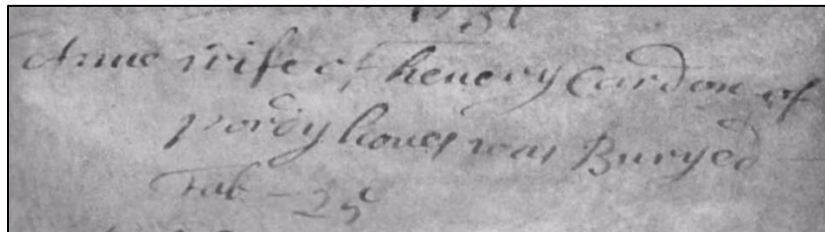 Anne wife of henery Cardon of
pordy houes was Buryed
Feb - 25